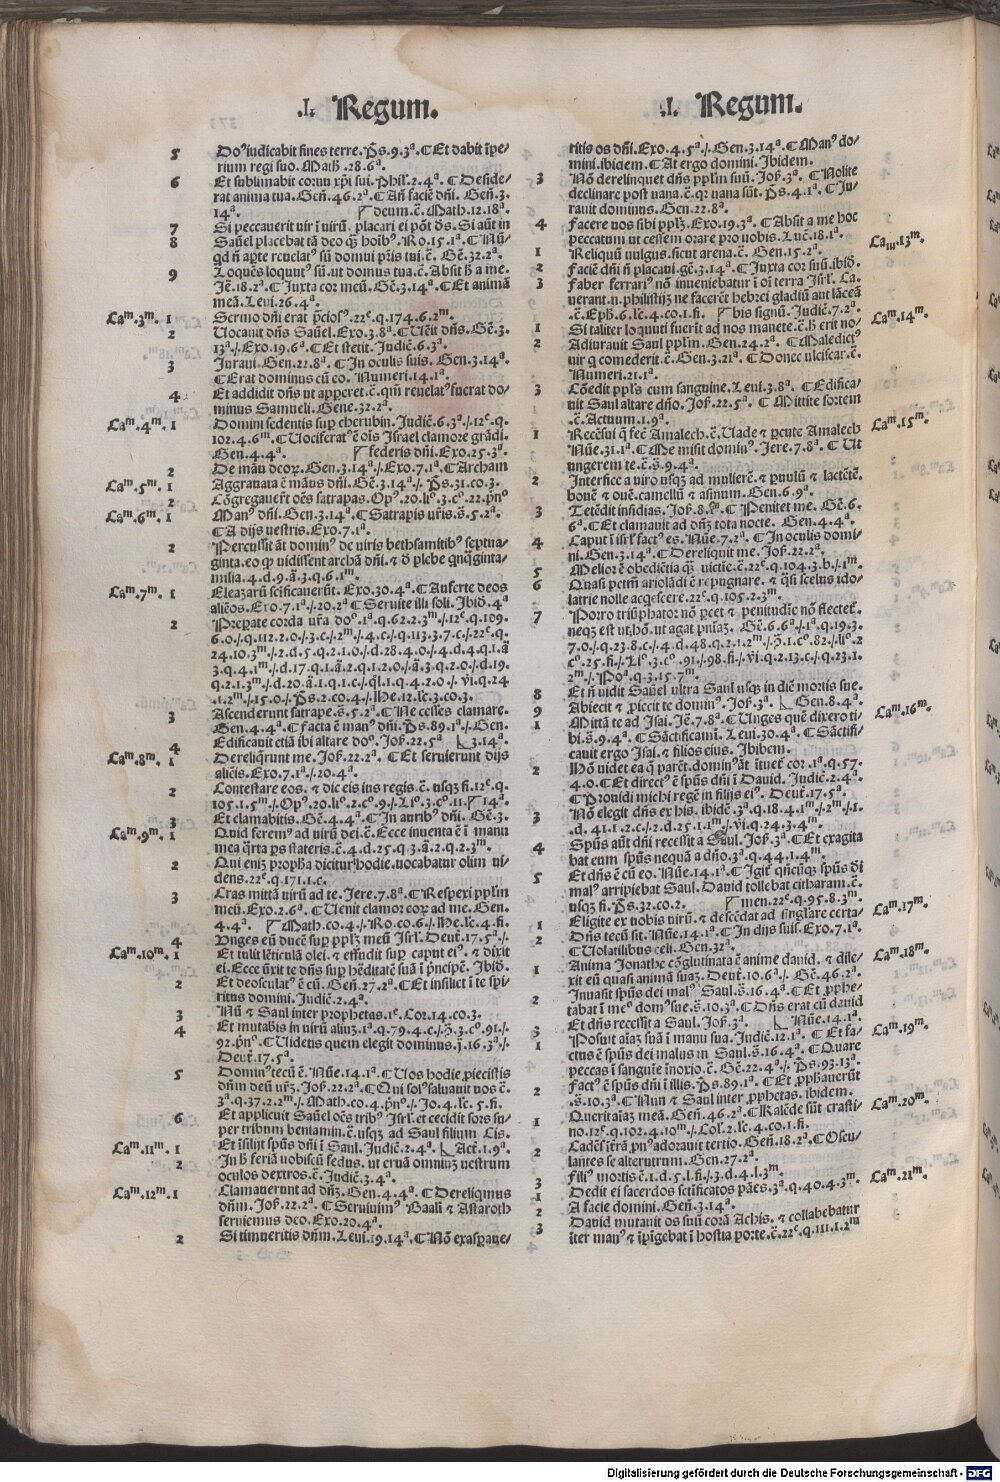 .I. Regum.
5 Doꝰ iudicabit fines terre. p̄s.9.3ᵃ. ⸿ Et dabit īpe/
rium regi suo. Math .28.6ᵃ.
6 Et sublimabit cornu xp̄i sui. Phil.2.4ᵃ. ⸿ Deside/
rat anima tua. Gen.46.2ᵃ. ⸿ Añ faciē dñi. Gen.3.
14ᵃ. deum.c̄. Math.12.18ᵃ.
7 Si peccauerit vir ī virū. placari ei pōt d̄s. Si aūt in
8 Sam̄el placebat tā deo qȝ hoībꝰ. Ro.15.1ᵃ. ⸿ Nū/
qd n̄ apte reuelatꝰ sū domui pr̄is tui.c̄. Gē.32.2ᵃ.
9 Loquēs loquutꝰ sū. ut domus tua.c̄. Absit h̄ a me.
Jē.18.2ᵃ. ⸿ Juxta cor meū. Gē.3.14ᵃ. ⸿ Et animā
meā. Leui.26.4ᵃ.
Caᵐ.3ᵐ. 1 Sermo dñi erat p̄ciosꝰ.22ᶜ.q.174.6.2ᵐ.
2 Uocauit dñs Sam̄el. Exo.3.8ᵃ. ⸿ Uēit dñs. Gē.3.
13ᵃ./. Exo.19.6ᵃ. ⸿ Et stetit. Judic̄.6.3ᵃ.
3 Juraui. Gen.22.8ᵃ. ⸿ In oculis suis. Gen.3.14ᵃ.
⸿ Erat dominus cū eo. Numeri.14.1ᵃ.
4 Et addidit dñs ut apperet.c̄. qm̄ reuelatꝰ fuerat do/
minus Samueli. Gene.32.2ᵃ.
Caᵐ.4ᵐ. 1 Domini sedentis sup cherubin. Judic̄.6.3ᵃ./.12ᶜ.q.
102.4.6ᵐ. ⸿ Uociferatꝰ ē ois Israel clamore grādi.
Gen.4.4ᵃ. federis dñi. Exo.25.3ᵃ.
2 De manu deoꝝ. Gen.3.14ᵃ./. Exo.7.1ᵃ. ⸿ Archam
Caᵐ.5ᵐ. 1 Aggrauata ē manus dñi. Gē.3.14ᵃ./. p̄s.31.co.3.
2 Cōgregauerūt oēs satrapas. Opꝰ.20.liᵒ.3.cᵒ.22.prᵒ
Caᵐ.6ᵐ. 1 Manꝰ dñi. Gen.3.14ᵃ. ⸿ Satrapis vr̄is.s̄.5.2ᵃ.
⸿ A dijs uestris. Exo.7.1ᵃ.
2 Percussit āt dominꝰ de viris bethsamitibꝰ septua/
ginta. eo qp uidissent archā dñi. ⁊ d̄ plebe qnqginta/
milia.4.d.9.ā.3.q.6.1ᵐ.
Caᵐ.7ᵐ. 1 Eleazarū scificauerūt. Exo.30.4ᵃ. ⸿ Auferte deos
aliēos. Exo.7.1ᵃ./.20.2ᵃ ⸿ Seruite illi soli. Ibid̄.4ᵃ
2 Preparate corda ur̄a doᵒ.1ᵃ.q.62.2.3ᵐ./.12ᶜ.q.109.
6.o./.q.112.2.o./.3.c./.2ᵐ./.4.c./.q.113.3.7.c./.22ᶜ.q.
24.10.3ᵐ./.2.d.5.q.2.1.o./.d.28.4.o./.4.d.4.q.1.ā
3.q.4.1ᵐ./.d.17.q.1.ā.2.q.1.2.o./.ā.3.q.2.o./.d.19.
q.2.1.3ᵐ./.d.20.ā.1.q.1.c./.ql.1.q.4.2.o./. vi.q.24
.1.2ᵐ./.15.o./. p̄s.2.co.4./. He.12.lc̄.3.co.3.
3 Ascenderunt satrape.s̄.5.2ᵃ. ⸿ Ne cesses clamare.
Gen.4.4ᵃ. ⸿ Facta ē manꝰ dñi. p̄s.89.1ᵃ./. Gen.
4 Edificauit etiā ibi altare doᵒ. Job̄.22.5ᵃ 3.14ᵃ.
Caᵐ.8ᵐ. 1 Dereliqrunt me. Job̄.22.2ᵃ. ⸿ Et seruierunt dijs
aliēis. Exo.7.1ᵃ./.20.4ᵃ.
2 Contestare eos. ⁊ dic eis ius regis.c̄. usqȝ fi.12ᶜ.q.
105.1.5ᵐ./. Opꝰ.20.liᵒ.2.cᵒ.9./. Liᵒ.3.cᵒ.11. 14ᵃ.
3 Et clamabitis. Gē.4.4ᵃ. ⸿ In auribꝰ dñi. Gē.3.
Caᵐ.9ᵐ. 1 Quid feremꝰ ad uirū dei.c̄. Ecce inuenta ē ī manu
mea qrta ps stateris.c̄.4.d.25.q.3.ā.2.q.2.3ᵐ.
2 Qui enim propha dicitur hodie. uocabatur olim ui/
dens.22ᶜ.q.171.1.c.
3 Cras mittā virū ad te. Jere.7.8ᵃ. ⸿ Respexi pplm
meū. Exo.2.6ᵃ. ⸿ Uenit clamor eoꝝ ad me. Gen.
4.4ᵃ. Math.co.4./. Ro.co.6./. He.lc̄.4.fi.
4 Unges eū ducē sup pplȝ meū Isrl. Deut̄.17.5ᵃ./.
Caᵐ.10ᵐ. 1 Et tulit lēticulā olei. ⁊ effudit sup caput eiꝰ. ⁊ dixit
ei. Ecce ūxit te dñs sup hēditatē suā ī pncipē. Ibid̄.
2 Et deosculatꝰ ē cū. Gen̄.27.2ᵃ. ⸿ Et insiliet ī te spi/
ritus domini. Judic̄.2.4ᵃ.
3 Nū ⁊ Saul inter prophetas.1ᶜ. Cor.14.co.3.
4 Et mutabis in uirū aliuȝ.1ᵃ.q.79.4.c./. p̄.3.cᵒ.91./.
92.prᵒ. ⸿ Uidetis quem elegit dominus.j.16.3ᵃ./.
Deut̄.17.5ᵃ.
5 Dominꝰ tecū ē. Nūe.14.1ᵃ. ⸿ Uos hodie piecistis
dñm deū ur̄ȝ. Job̄.22.2ᵃ. ⸿ Qui solꝰ saluauit uos c̄.
3ᵃ.q.37.2.2ᵐ./. Math.co.4.prᵒ./. Jo.4.lc̄.5.fi.
6 Et applicuit Sam̄el oēs tribꝰ Isrl. et cecidit sors su/
per tribum beniamin.c̄. usqȝ ad Saul filium Cis.
Caᵐ.11ᵐ. 1 Et īsilijt spūs dñi ī Saul. Judic̄.2.4ᵃ. Act̄.1.9ᵃ.
2 In h̄ feriā uobiscū fedus. ut eruā omniuȝ uestrum
oculos dextros.c̄. Judic̄.3.4ᵃ.
Caᵐ.12ᵐ. 1 Clamauerunt ad dñȝ. Gen.4.4ᵃ. ⸿ Dereliqmus
dñm. Job̄.22.2ᵃ. ⸿ Seruiuimꝰ Baalī ⁊ Astaroth
seruiemus deo. Exo.20.4ᵃ.
2 Si timueritis dñm. Leui.19.14ᵃ. ⸿ Nō exaspaue/
.I. Regum.
ritis os dñi. Exo.4.5ᵃ./. Gen.3.14ᵃ. ⸿ Manꝰ do/
mini. ibidem. ⸿ At ergo domini. Ibidem.
3 Nō derelinquet dñs pplm suū. Job̄.3ᵃ. ⸿ Nolite
declinare post uana.c̄. qꝛ uana sūt. p̄s.4.1ᵃ. ⸿ Ju/
rauit dominus. Gen.22.8ᵃ.
4 Facere uos sibi pplȝ. Exo.19.3ᵃ. ⸿ Absit a me hoc
peccatum ut cessem orare pro uobis. Luc̄.18.1ᵃ.
1 Reliquū uulgus. sicut arena.c̄. Gen.15.2ᵃ. Caᵐ.13ᵐ.
2 Faciē dñi n̄ placaui.gē.3.14ᵃ. ⸿ Juxta cor suū. ibid̄.
3 Faber ferrariꝰ nō inueniebatur ī oī terra Isrl. Ca.
uerant.n. philistijȝ ne facerēt hebrei gladiū aut lāceā
.c̄. Eph.6.lc̄.4.co.1.fi. bis signū. Judic̄.7.2ᵃ.
1 Si taliter loquuti fuerīt ad nos manete.c̄. h̄ erit no/ Caᵐ.14ᵐ.
2 Adiurauit Saul pplm. Gen.24.2ᵃ. ⸿ Maledictꝰ
uir q comederit.c̄. Gen.3.21ᵃ. ⸿ Donec ulciscar.c̄.
Numeri.21.1ᵃ.
3 Cōedit ppls cum sanguine. Leui.3.8ᵃ. ⸿ Edifica/
uit Saul altare dño. Job̄.22.5ᵃ. ⸿ Mittite sortem
.c̄. Actuum.1.9ᵃ.
1 Recēsui q̄ fec̄ Amalech.c̄. Uade ⁊ pcute Amalech Caᵐ.15ᵐ.
Nūe.31.1ᵃ. ⸿ Me misit dominꝰ. Jere.7.8ᵃ. ⸿ Ut
ungerem te.c̄.s̄.9.4ᵃ.
2 Interfice a uiro usqȝ ad mulierē. ⁊ puulū ⁊ lactētē.
bouē ⁊ ouē. camellū ⁊ asinum. Gen.6.9ᵃ.
3 Tetēdit insidias. Job̄.8. ⸿ Penitet me. Gē.6.
6ᵃ. ⸿ Et clamauit ad dñȝ tota nocte. Gen.4.4ᵃ.
4 Caput ī isrl factꝰ es. Nūe.7.2ᵃ. ⸿ In oculis domi/
ni. Gen.3.14ᵃ. ⸿ Dereliquit me. Job̄.22.2ᵃ.
5 Melior ē obediētia qȝ uictīe.c̄.22ᶜ.q.104.3.b./.1ᵐ.
6 Quasi pctm̄ ariolādi ē repugnare. ⁊ qsi scelus ido/
latrie nolle acqescere.22ᶜ.q.105.2.3ᵐ.
7 Porro triūphator nō pcet ⁊ penitudīe nō flectet̄.
neqȝ est ut hō. ut agat pniaȝ. Gē.6.6ᵃ./.1ᵃ.q.19.3.
7.o./.q.23.8.c./.4.d.48.q.2.1.2ᵐ./. p̄.1.cᵒ.82./.liᵒ.2
cᵒ.25.fi./. Liᵒ.3.cᵒ.91./.98.fi./.vi.q.2.13.c./.q.23.1.
2ᵐ./. Poᵃ.q.3.15.7ᵐ.
8 Et n̄ uidit Sam̄el ultra Saul usqȝ in diē mortis sue.
9 Abiecit ⁊ piecit te dominꝰ. Job̄.3ᵃ. Gen.8.4ᵃ.
1 Mittā te ad Isai. Jē.7.8ᵃ. ⸿ Unges quē dixero ti/ Caᵐ.16ᵐ.
bi.s̄.9.4ᵃ. ⸿ Sāctificamī. Leui.30.4ᵃ. ⸿ Sāctifi/
cauit ergo Isai. ⁊ filios eius. Ibibem.
2 Hō uidet ea q̄ parēt. dominꝰ āt ītuet̄ cor.1ᵃ.q.57.
4.o. ⸿ Et directꝰ ē spūs dñi ī Dauid. Judic̄.2.4ᵃ.
⸿ Prouidi michi regē in filijs eiꝰ. Deut̄.17.5ᵃ.
3 Nō elegit dñs ex his. ibidē.3ᵃ.q.18.4.1ᵐ./.2ᵐ./.1.
.d.41.1.2.c./.2.d.25.1.1ᵐ./.vi.q.24.3.4ᵐ.
4 Spūs aūt dñi recessit a Saul. Job̄.3ᵃ. ⸿ Et exagita
bat eum spūs nequā a dño.3ᵃ.q.44.1.4ᵐ.
5 Et dñs ē cū eo. Nūe.14.1ᵃ. ⸿ Igit̄ qn̄cūqȝ spūs dñi
malꝰ arripiebat Saul. Dauid tollebat citharam.c̄.
usqȝ fi. p̄s.32.co.2. men.22ᶜ.q.95.8.3ᵐ.
1 Eligite ex uobis uirū. ⁊ descēdat ad singlare certa/ Caᵐ.17ᵐ.
2 Dñs tecū sit. Nūe.14.1ᵃ. ⸿ In dijs suis. Exo.7.1ᵃ.
⸿ Uolatilibus celi. Gen.32ᵃ.
1 Anima Jonathe cōglutinata ē anime dauid. ⁊ dile/ Caᵐ.18ᵐ.
xit eū quasi animā suaȝ. Deut̄.10.6ᵃ./. Gē.46.2ᵃ.
2 Inuasit spūs dei malꝰ Saul.s̄.16.4ᵃ. ⸿ Et pphe/
tabat ī meᵒ domꝰ sue.s̄.10.3ᵃ. ⸿ Dñs erat cū dauid
Et dñs recessit a Saul. Job̄.3ᵃ. Nūe.14.1ᵃ.
3 Posuit aiaȝ suā ī manu sua. Judic̄.12.1ᵃ. ⸿ Et fa/ Caᵐ.19ᵐ.
1 ctus ē spūs dei malus in Saul.s̄.16.4ᵃ. ⸿ Quare
peccas ī sanguīe īnoxio.c̄. Gē.22.4ᵃ./. p̄s.93.13ᵃ.
2 Factꝰ ē spūs dñi ī illis. p̄s.89.1ᵃ. ⸿ Et pphauerūt
.s̄.10.3ᵃ. ⸿ Nun ⁊ Saul inter pphetas. ibidem.
1 Querit aiaȝ meā. Gen̄.46.2ᵃ. ⸿ Kalēde sūt crasti/ Caᵐ.20ᵐ.
no.12ᶜ.q.102.4.10ᵐ./. Col.2.lc̄.4.co.1.fi.
2 Cadēs ī terrā pnꝰ adorauit tertio. Gen̄.18.2ᵃ. ⸿ Oscu/
lantes se alterutrum. Gen.27.2ᵃ.
3 Filiꝰ mortis ē.1.d.5.l.fi./.3.d.4.l.3ᵐ.
1 Dedit ei sacerdos sctificatos pāes.3ᵃ.q.40.4.3ᵐ. Caᵐ.21ᵐ.
2 A facie domini. Gen.3.14ᵃ.
3 Dauid mutauit os suū corā Achis. ⁊ collabebatur
īter manꝰ ⁊ īpīgebat ī hostia porte.c̄.22ᶜ.q.111.1.2ᵐ
Digitalisierung gefördert durch die Deutsche Forschungsgemeinschaft - DFG